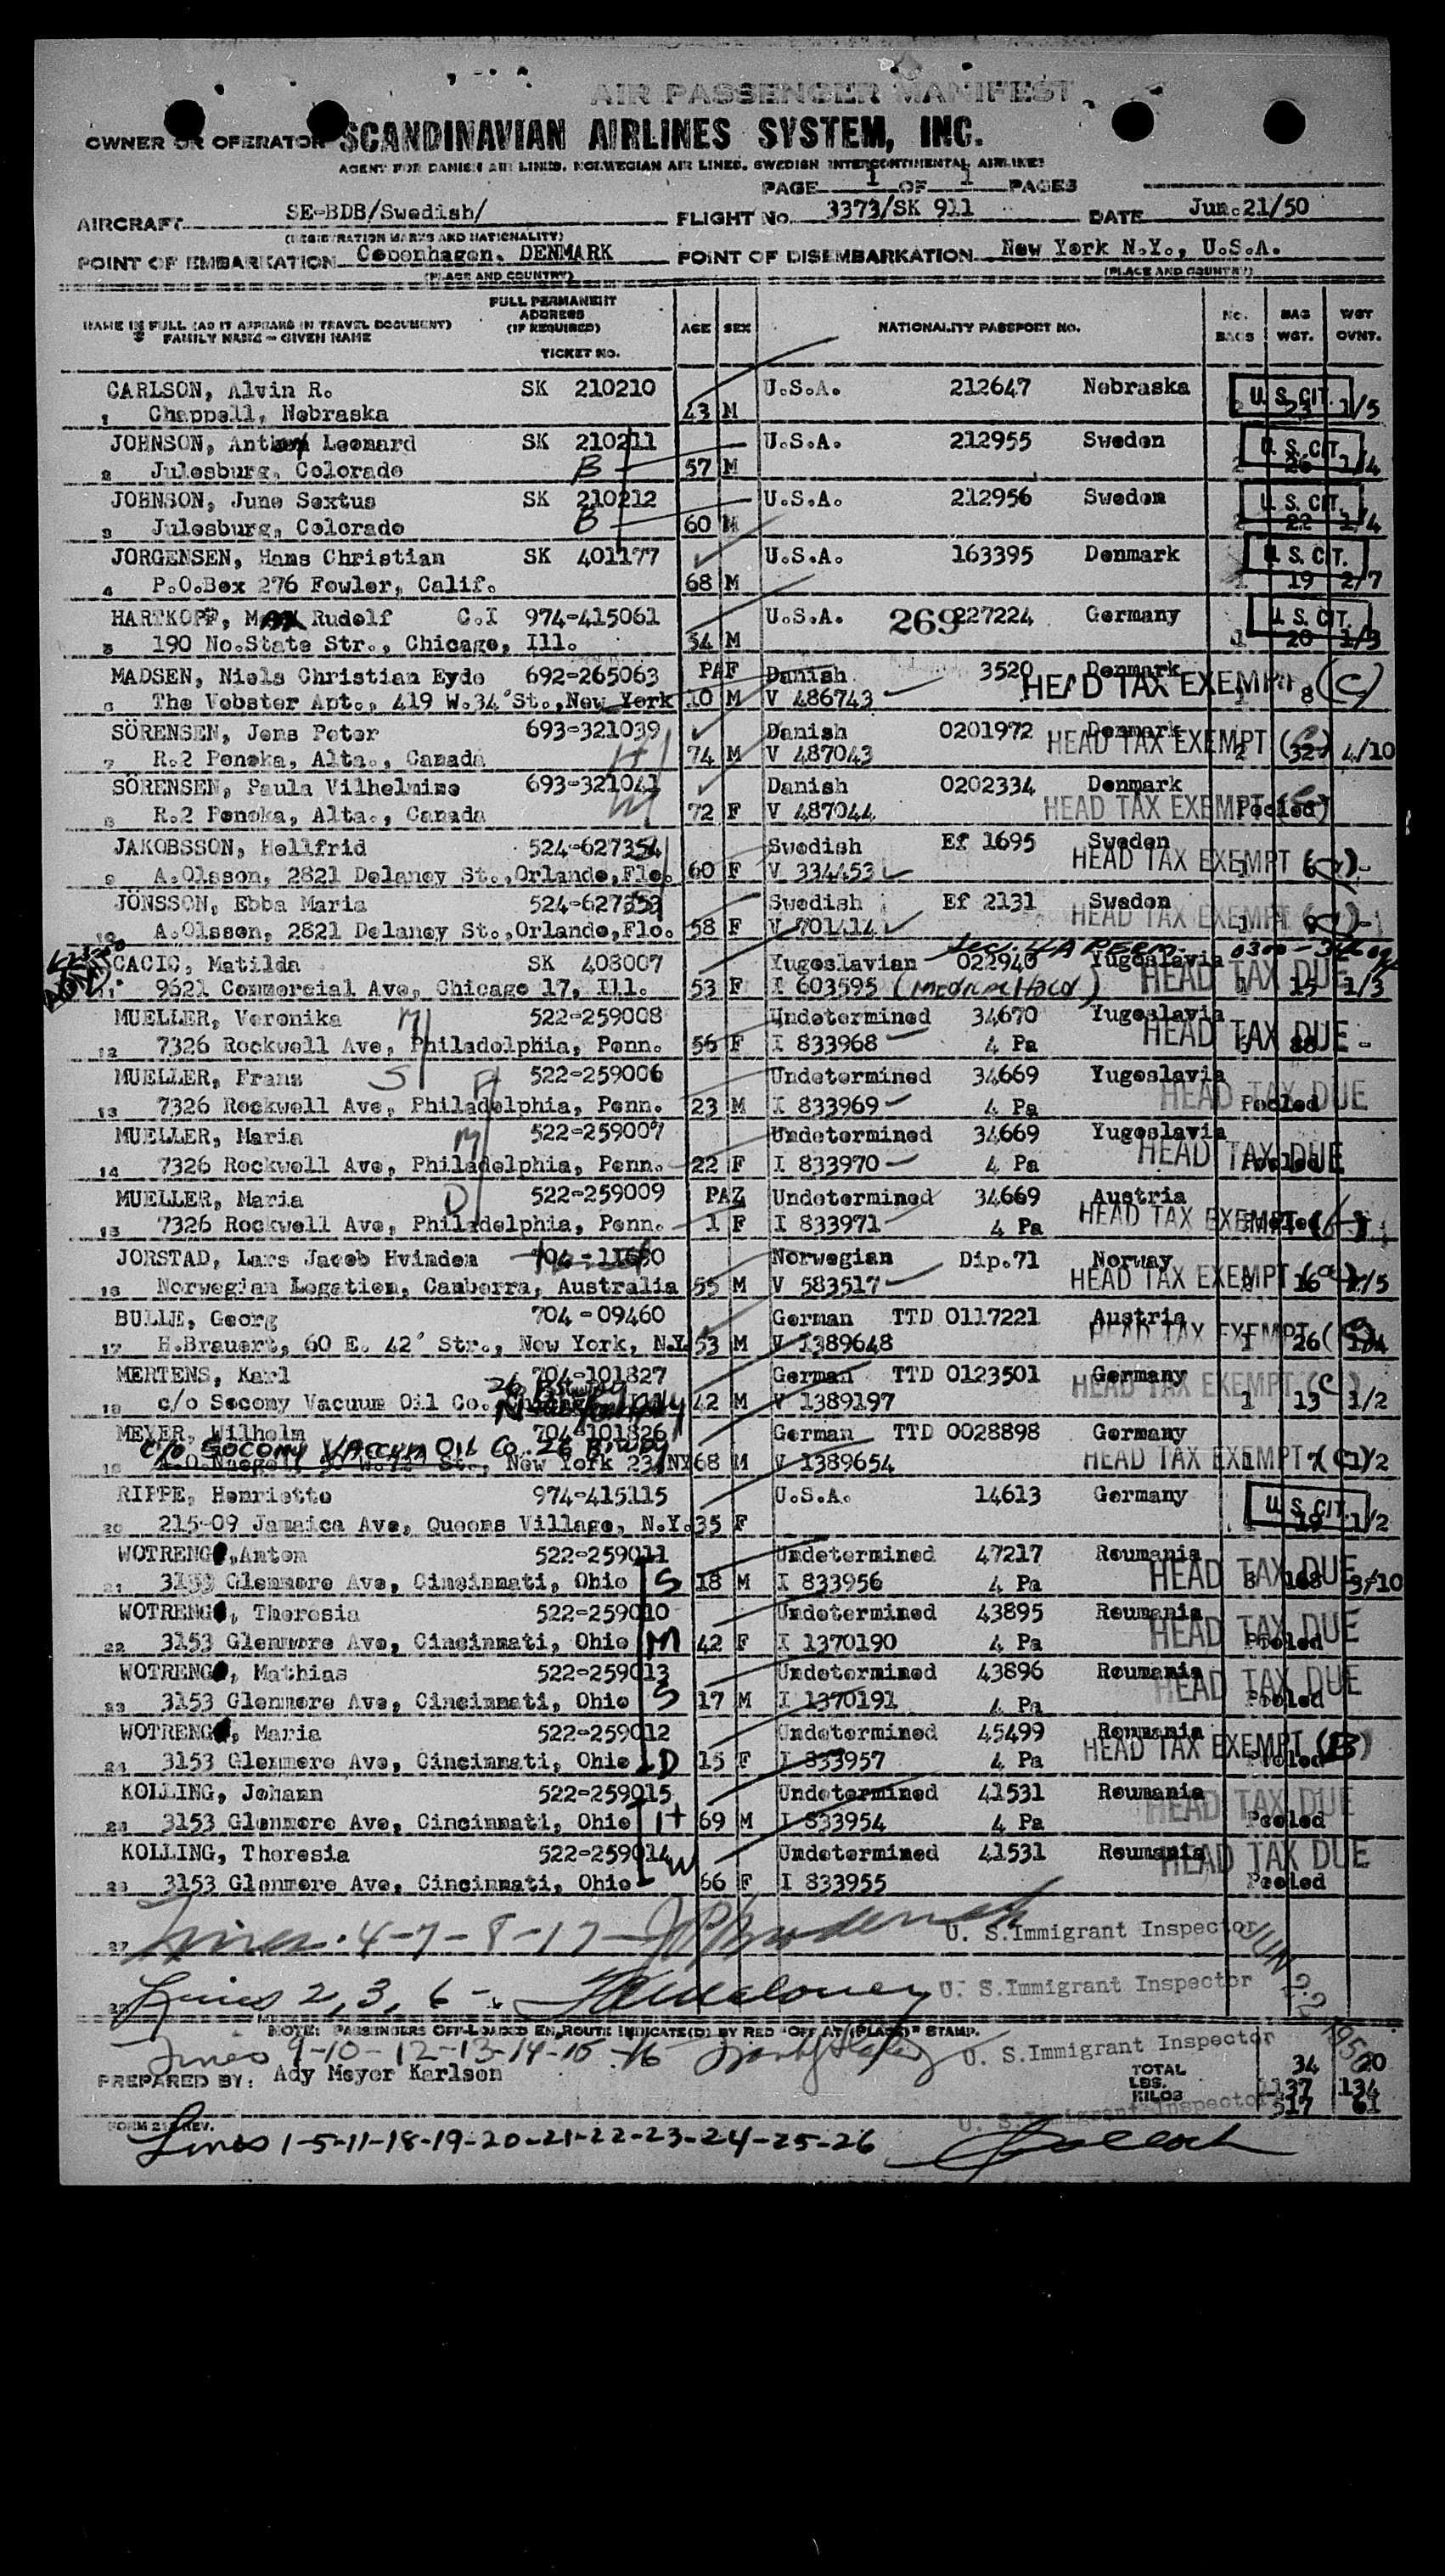 AIR PASSENGER MANIFEST
OWNER OR OPERATOR SCANDINAVIAN AIRLINES SYSTEM, INC.
AGENT FOR DANISH AIR LINES, NORWEGIAN AIR LINES, SWEDISH INTERCONTINENTAL AIRLINES
PAGE 1 OF 1 PAGES
AIRCRAFT SE-BDB/Swedish/ FLIGHT No. 3373/SK 911 DATE Jun.21/50
(REGISTRATION MARKS AND NATIONALITY)
POINT OF EMBARKATION Copenhagen, DENMARK POINT OF DISEMBARKATION New York N.Y., U.S.A.
(PLACE AND COUNTRY) (PLACE AND COUNTRY)
NAME IN FULL (AS IT APPEARS IN TRAVEL DOCUMENT) FAMILY NAME - GIVEN NAME FULL PERMANENT ADDRESS (IF REQUIRED) TICKET NO. AGE SEX NATIONALITY PASSPORT NO. No. BAGS BAG WGT. WGT OVNT.
CARLSON, Alvin R. SK 210210 U.S.A. 212647 Nebraska U. S. CIT.
1 Chappell, Nebraska 43 M 23 1/5
JOHNSON, Leonard SK 210211 U.S.A. 212955 Sweden U. S. CIT.
2 Julesburg, Colorado B 57 M 2 26 1/4
JOHNSON, June Sextus SK 210212 U.S.A. 212956 Sweden U. S. CIT.
3 Julesburg, Colorado B 60 M 2 22 1/4
JORGENSEN, Hans Christian SK 401177 U.S.A. 163395 Denmark U. S. CIT.
4 P.O.Box 276 Fowler, Calif. 68 M 1 19 2/7
HARTKOPF, Max Rudolf C.I 974-415061 U.S.A. 269 227224 Germany U. S. CIT.
5 190 No.State Str., Chicago, Ill. 34 M 1 20 1/3
MADSEN, Niels Christian Eyde 692-265063 PAF Danish 3520 Denmark HEAD TAX EXEMPT (C)
6 The Webster Apt., 419 W.34'St.,New York 10 M V 486743 1 8
SÖRENSEN, Jens Peter 693-321039 Danish 0201972 Denmark HEAD TAX EXEMPT
7 R.2 Ponoka, Alta., Canada H 74 M V 487043 2 32 4/10
SÖRENSEN, Paula Vilhelmine 693-321041 Danish 0202334 Denmark HEAD TAX EXEMPT
8 R.2 Ponoka, Alta., Canada W 72 F V 487044 Pooled
JAKOBSSON, Hellfrid 524-627354 Swedish Ef 1695 Sweden HEAD TAX EXEMPT
9 A.Olsson, 2821 Delaney St.,Orlando,Flo. 60 F V 334453
JÖNSSON, Ebba Maria Swedish Ef 2131 Sweden HEAD TAX EXEMPT
10 A.Olsson, 2821 Delaney St.,Orlando,Flo. 58 F V 701414 1
CACIC, Matilda SK 408007 Yugoslavian 022940 Yugoslavia HEAD TAX DUE
11 9621 Commercial Ave, Chicago 17, Ill. 53 F I 603595 (MEDICAL HOLD) 15 1/3
MUELLER, Veronika M 522-259008 Undetermined 34670 Yugoslavia HEAD TAX DUE
12 7326 Rockwell Ave, Philadelphia, Penn. 56 F I 833968 4 Pa 88
MUELLER, Franz S H 522-259006 Undetermined 34669 Yugoslavia HEAD TAX DUE
13 7326 Rockwell Ave, Philadelphia, Penn. 23 M I 833969 4 Pa Pooled
MUELLER, Maria 522-259007 Undetermined 34669 Yugoslavia HEAD TAX DUE
14 7326 Rockwell Ave, Philadelphia, Penn. 22 F I 833970 4 Pa Pooled
MUELLER, Maria D 522-259009 PAZ Undetermined 34669 Austria HEAD TAX EXEMPT
15 7326 Rockwell Ave, Philadelphia, Penn. 1 F I 833971 4 Pa Pooled
JORSTAD, Lars Jacob Hvinden Norwegian Dip.71 Norway HEAD TAX EXEMPT
16 Norwegian Legation, Canberra, Australia 55 M V 583517 16
BULLE, Georg 704-09460 German TTD 0117221 Austria HEAD TAX EXEMPT
17 H.Brauert, 60 E. 42' Str., New York, N.Y. 53 M V 1389648 1 26
MERTENS, Karl 704-101827 German TTD 0123501 Germany HEAD TAX EXEMPT (C)
18 c/o Socony Vacuum Oil Co. 42 M V 1389197 1 13 1/2
MEYER, Wilhelm 704-101826 German TTD 0028898 Germany HEAD TAX EXEMPT
C/O SOCONY VACCUM OIL CO. 26 BWAY
19 New York 23, NY 68 M V 1389654
RIPPE, Henriette 974-415115 U.S.A. 14613 Germany U. S. CIT.
20 215-09 Jamaica Ave, Queens Village, N.Y. 35 F 19 1/2
WOTRENG, Anton 522-259011 Undetermined 47217 Roumania HEAD TAX DUE
21 3153 Glenmore Ave, Cincinnati, Ohio S 18 M I 833956 4 Pa 8 168 3/10
WOTRENG, Theresia 522-259010 Undetermined 43895 Roumania HEAD TAX DUE
22 3153 Glenmore Ave, Cincinnati, Ohio M 42 F I 1370190 4 Pa Pooled
WOTRENG, Mathias 522-259013 Undetermined 43896 Roumania HEAD TAX DUE
23 3153 Glenmore Ave, Cincinnati, Ohio S 17 M I 1370191 4 Pa Pooled
WOTRENG, Maria 522-259012 Undetermined 45499 Roumania HEAD TAX EXEMPT (B)
24 3153 Glenmore Ave, Cincinnati, Ohio D 15 F I 833957 4 Pa Pooled
KOLLING, Johann 522-259015 Undetermined 41531 Roumania HEAD TAX DUE
25 3153 Glenmore Ave, Cincinnati, Ohio H 69 M I 833954 4 Pa Pooled
KOLLING, Theresia 522-259014 W Undetermined 41531 Roumania HEAD TAX DUE
26 3153 Glenmore Ave, Cincinnati, Ohio 66 F I 833955 Pooled
27 Lines 4-7-8-17 U. S.Immigrant Inspector
28 Lines 2, 3, 6 - U. S.Immigrant Inspector
JUN 22 1950
NOTE: PASSENGERS OFF-LOADED EN ROUTE INDICATE(D) BY RED "OFF AT (PLACE)" STAMP.
Lines 9-10-12-13-14-15-16 U. S.Immigrant Inspector
PREPARED BY: Ady Meyer Karlson TOTAL 34 20
LBS. 1137 134
KILOS 517 61
U. S.Immigrant Inspector
FORM REV.
Lines 1-5-11-18-19-20-21-22-23-24-25-26